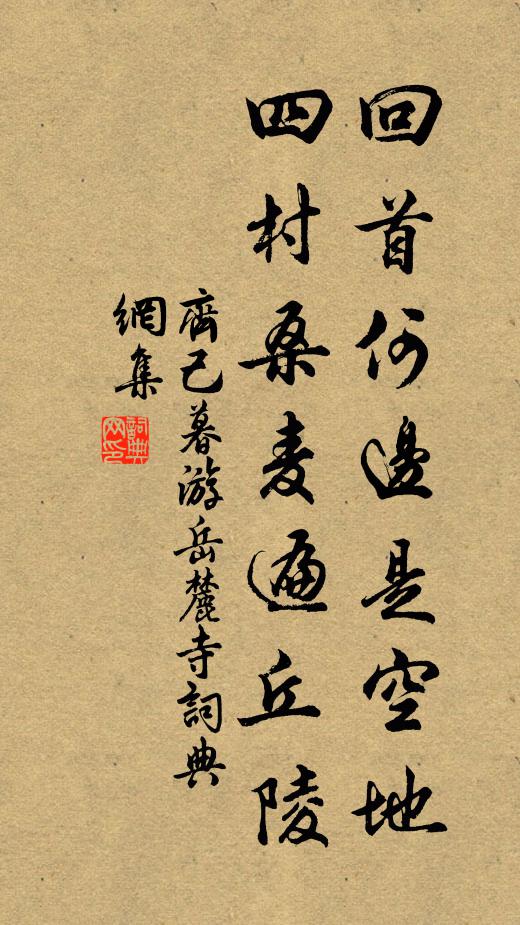 回首何邊是空地
四村桑麥遍丘陵
齊己暮游岳麓寺詞典
網集
詞典
网印